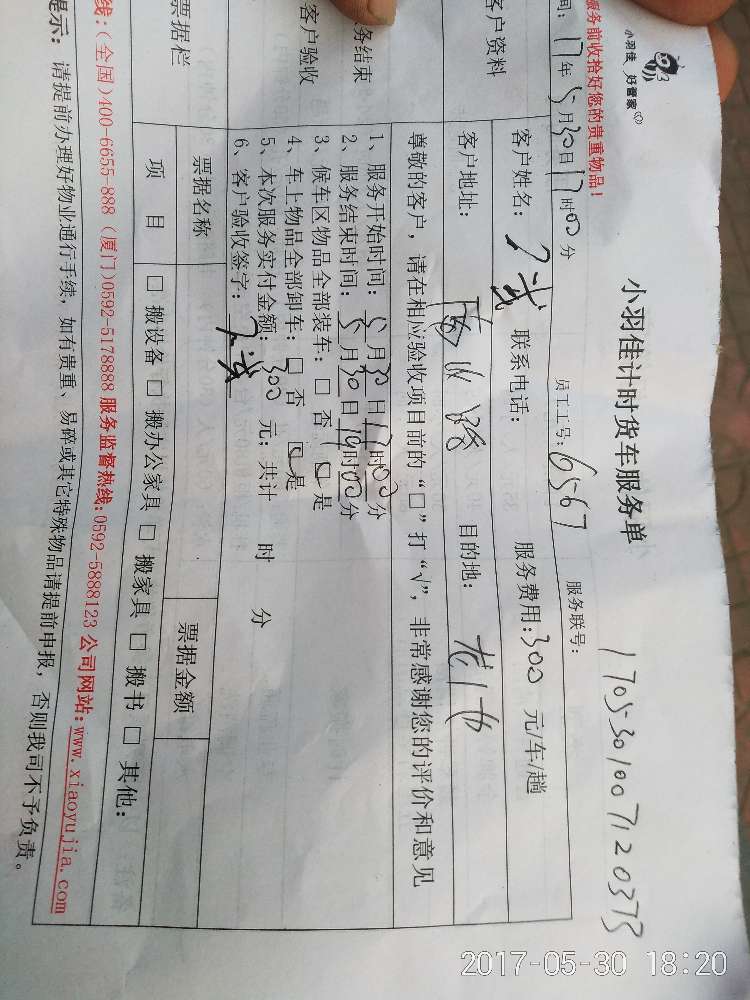 小羽佳 好管家
小羽佳计时货车服务单
服务前收拾好您的贵重物品！
间：17年5月30日17时00分 员工工号：6567 服务联号：1705301007120373
客户资料 客户姓名： 联系电话： 服务费用：300 元/车/趟
客户地址： 目的地：
尊敬的客户，请在相应验收项目前的“□”打“√”，非常感谢您的评价和意见
务结束
客户验收
1、服务开始时间：5月30日17时00分
2、服务结束时间：5月30日19时00分
3、候车区物品全部装车：□ 否 □ 是
4、车上物品全部卸车：□ 否 □ 是
5、本次服务实付金额：300 元；共计 时 分
6、客户验收签字：
票据栏 票据名称 票据金额
项 目 □ 搬设备 □ 搬办公家具 □ 搬家具 □ 搬书 □ 其他：
线：(全国)400-6655-888 (厦门)0592-5178888 服务监督热线：0592-5888123 公司网站：www.xiaoyujia.com
提示：请提前办理好物业通行手续，如有贵重、易碎或其它特殊物品请提前申报，否则我司不予负责。
2017-05-30 18:20